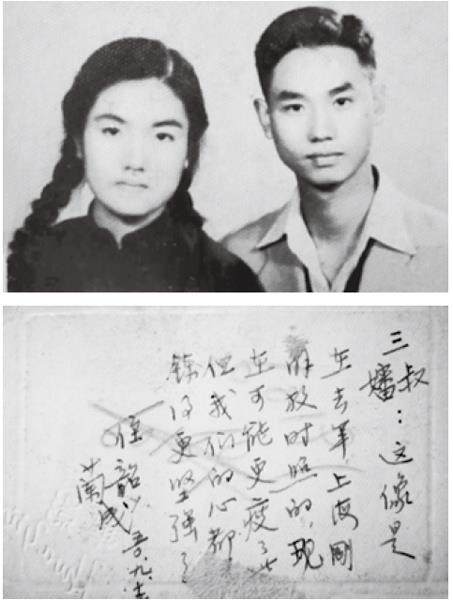 三叔嬸：这像是
在去年上海剛
解放时照的，现
在可能更瘦了些
但我们的心都
鍊得更坚强了
侄韶
蘭成